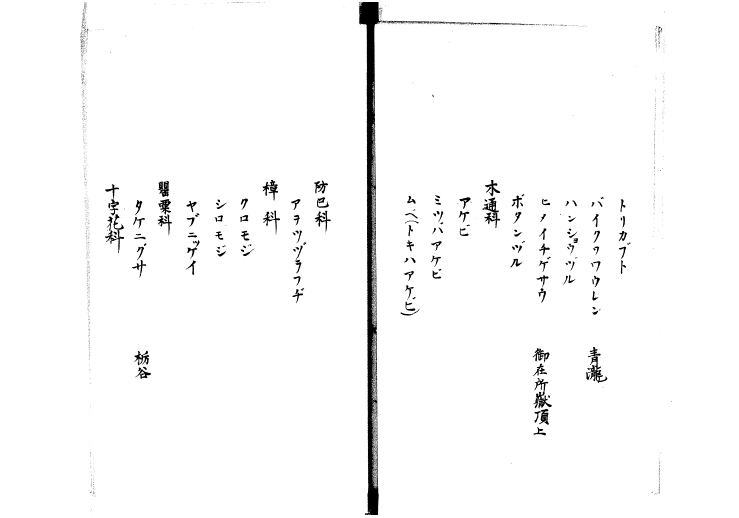 トリカブト
バイクワワウレン　青瀧
ハンショウヅル
ヒメイチゲサウ　御在所嶽頂上
ボタンヅル
木通科
アケビ
ミツバアケビ
ムベ(トキハアケビ)
防已科
アヲツヅラフヂ
樟科
クロモジ
シロモジ
ヤブニッケイ
罌粟科
タケニグサ　栃谷
十字花科